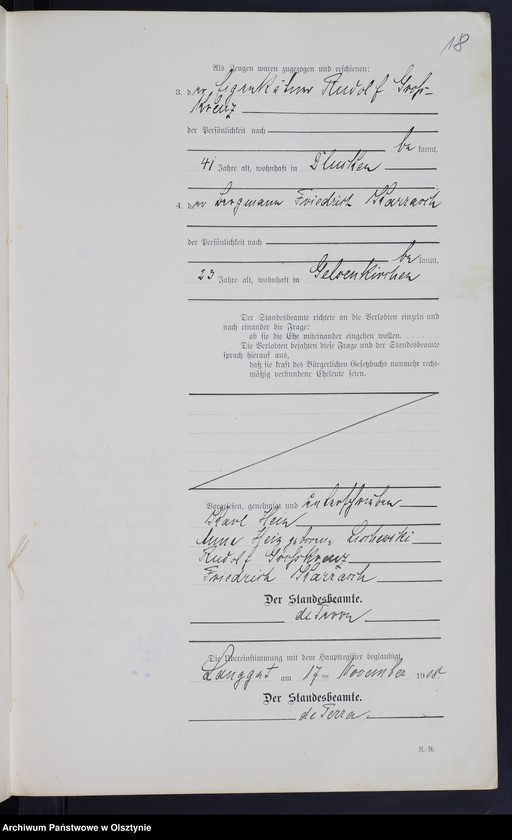 18
Als Zeugen waren zugezogen und erschienen:
3. der Eigenkätner Rudolf Groß-
Kreuz
der Persönlichkeit nach
be kannt,
41 Jahre alt, wohnhaft in Dlusken
4. der Bergmann Friedrich Karrasch
der Persönlichkeit nach
be kannt,
23 Jahre alt, wohnhaft in Gelsenkirchen
Der Standesbeamte richtete an die Verlobten einzeln und
nach einander die Frage:
ob sie die Ehe miteinander eingehen wollen.
Die Verlobten bejahten diese Frage und der Standesbeamte
sprach hierauf aus,
daß sie kraft des Bürgerlichen Gesetzbuchs nunmehr recht-
mäßig verbundene Eheleute seien.
Vorgelesen, genehmigt und unterschrieben
Karl Hein
Anna Hein geborene
Rudolf Großkreuz
Friedrich Karrasch
Der Standesbeamte.
de Terra
Die Übereinstimmung mit dem Hauptregister beglaubigt
am 17ten November 19
Der Standesbeamte.
de Terra
R.-R.
Archiwum Państwowe w Olsztynie